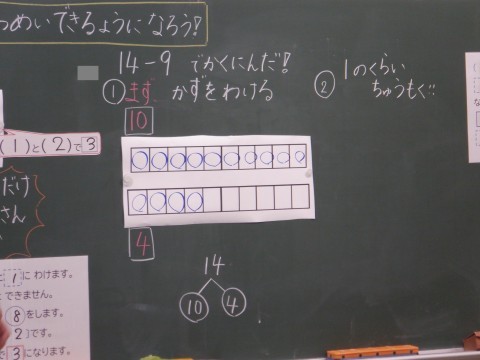 つめいできるようになろう!
14-9 でかくにんだ!
① まず かずをわける
② 1のくらい
ちゅうもく!!
10
(1)と(2)で3
だけ
さん
4
14
10 4
と 1 に わけます。
できません。
8 をします。
2 です。
3 になります。